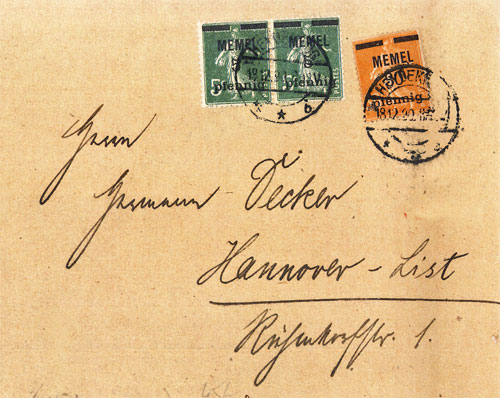 MEMEL MEMEL
5 pfennig pfennig
MEMEL
pfennig
18.12.20
Herrn
Hermann Decker
Hannover - List
Rühmkorffstr. 1.